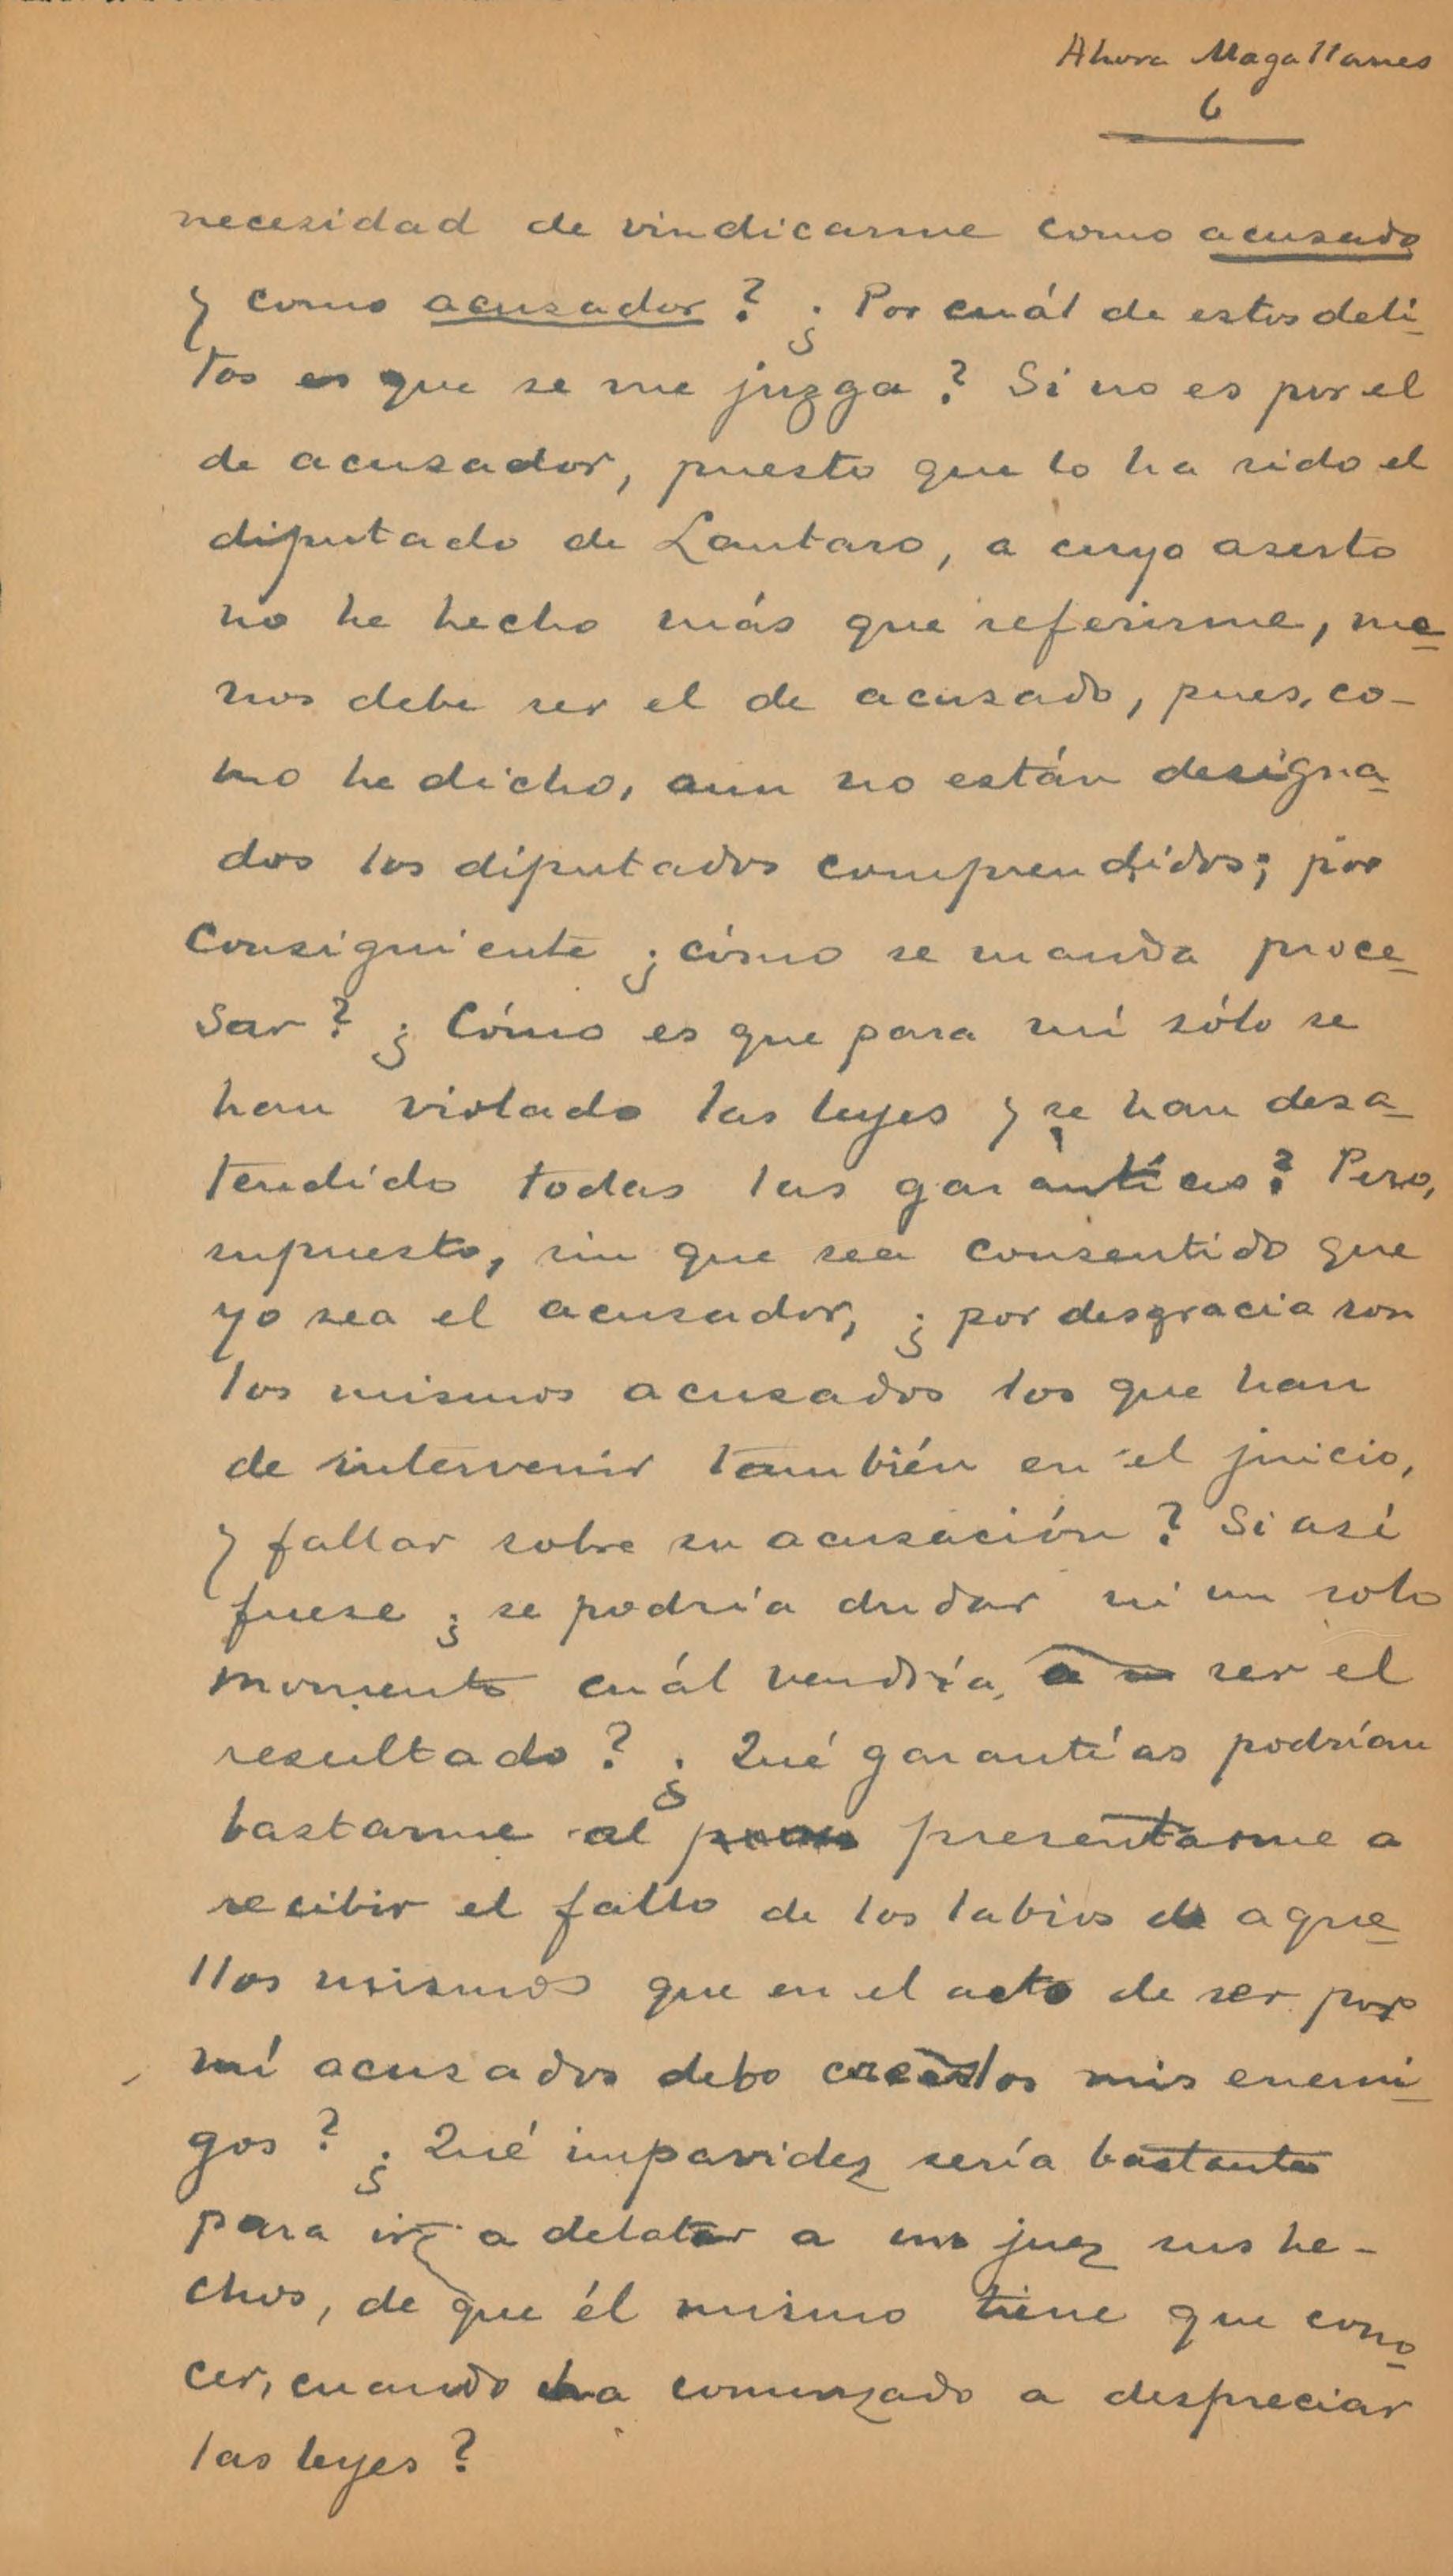 Ahora Magallanes
6
necesidad de vindicarme como acusado
y como acusador? ¿Por cuál de estos deli-
tos es que se me juzga? Si no es por el
de acusador, puesto que lo ha sido el
diputado de Lautaro, a cuyo aserto
no he hecho más que referirme, me-
nos debe ser el de acusado, pues, co-
mo he dicho, aun no están designa-
dos los diputados comprendidos; por
consiguiente ¿cómo se manda proce-
sar? ¿Cómo es que para mí sólo se
han violado las leyes y se han desa-
tendido todas las garantías? Pero,
supuesto, sin que sea consentido que
yo sea el acusador, ¿por desgracia son
los mismos acusados los que han
de intervenir también en el juicio,
y fallar sobre su acusación? Si así
fuese ¿se podría dudar ni un solo
momento cuál vendría, a ser el
resultado? ¿Qué garantías podrían
bastarme al presentarme a
recibir el fallo de los labios de aque-
llos mismos que en el acto de ser por
mí acusados debo creerlos mis enemi-
gos? ¿Qué impavidez sería bastante
para ir a delatar a un juez sus he-
chos, de que él mismo tiene que cono-
cer, cuando ha comenzado a despreciar
las leyes?